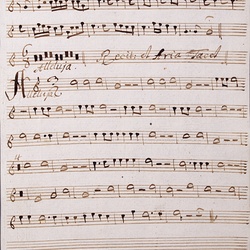 Alleluja. Recit: et Aria Tacet
Alleluja